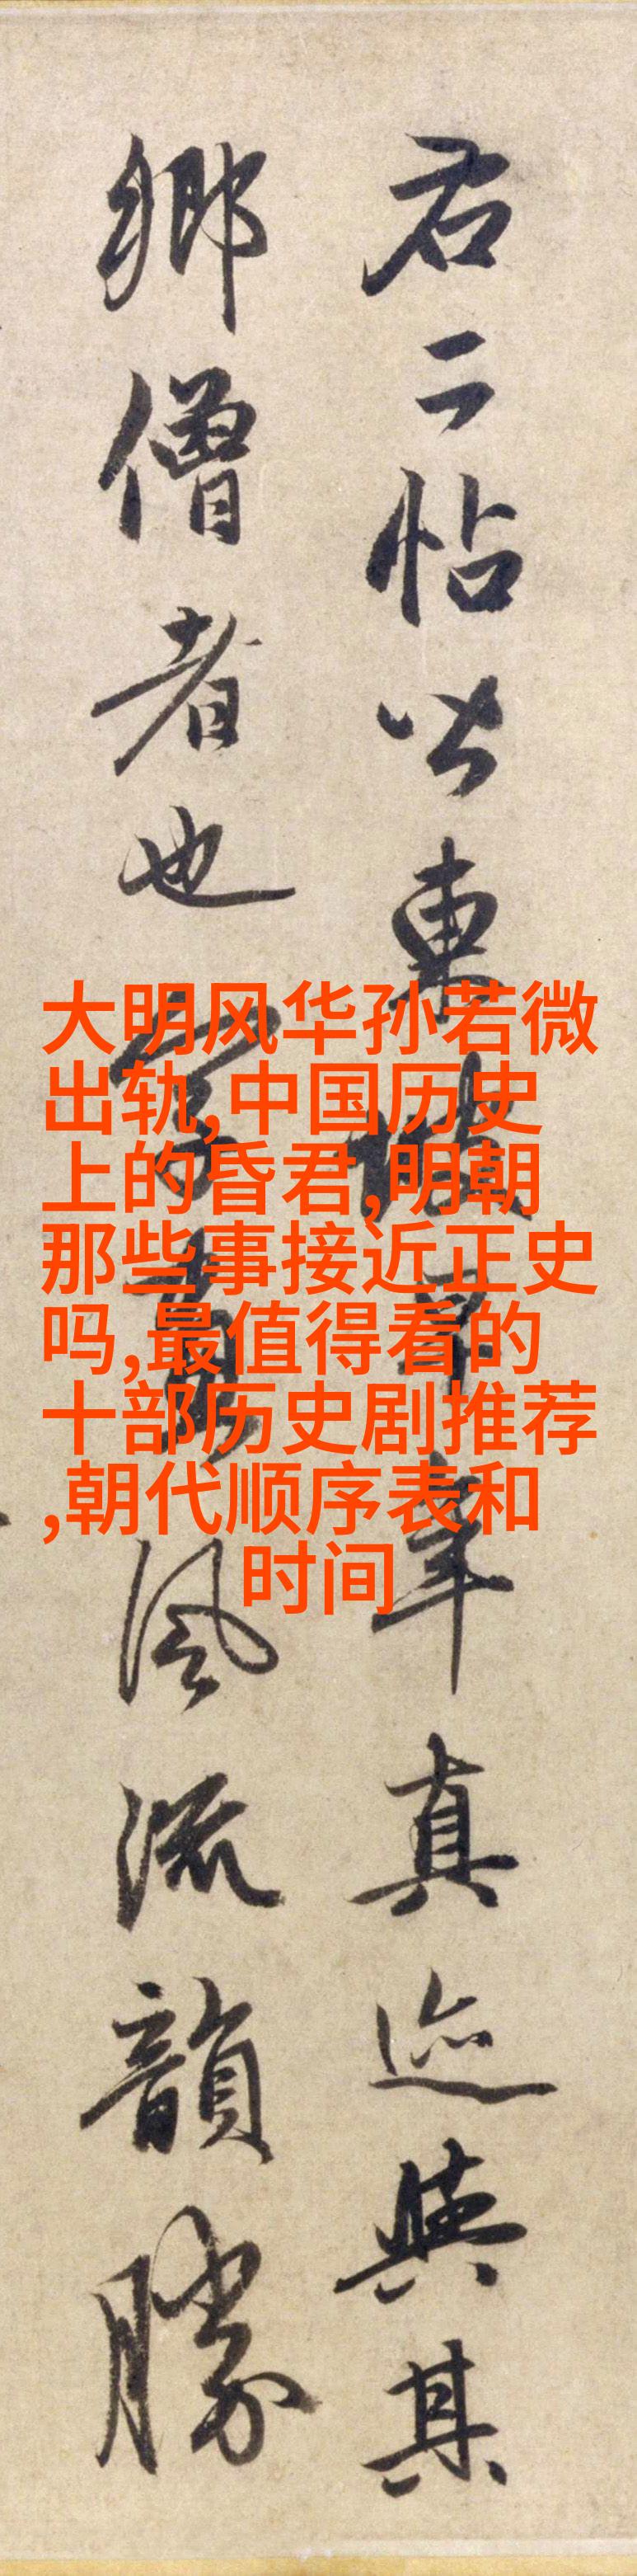 君二帖皆東坡早年真迹與其
鄉僧者也字畫風流韻勝
大明风华孙若微
出轨,中国历史
上的昏君,明朝
那些事接近正史
吗,最值得看的
十部历史剧推荐
,朝代顺序表和
时间